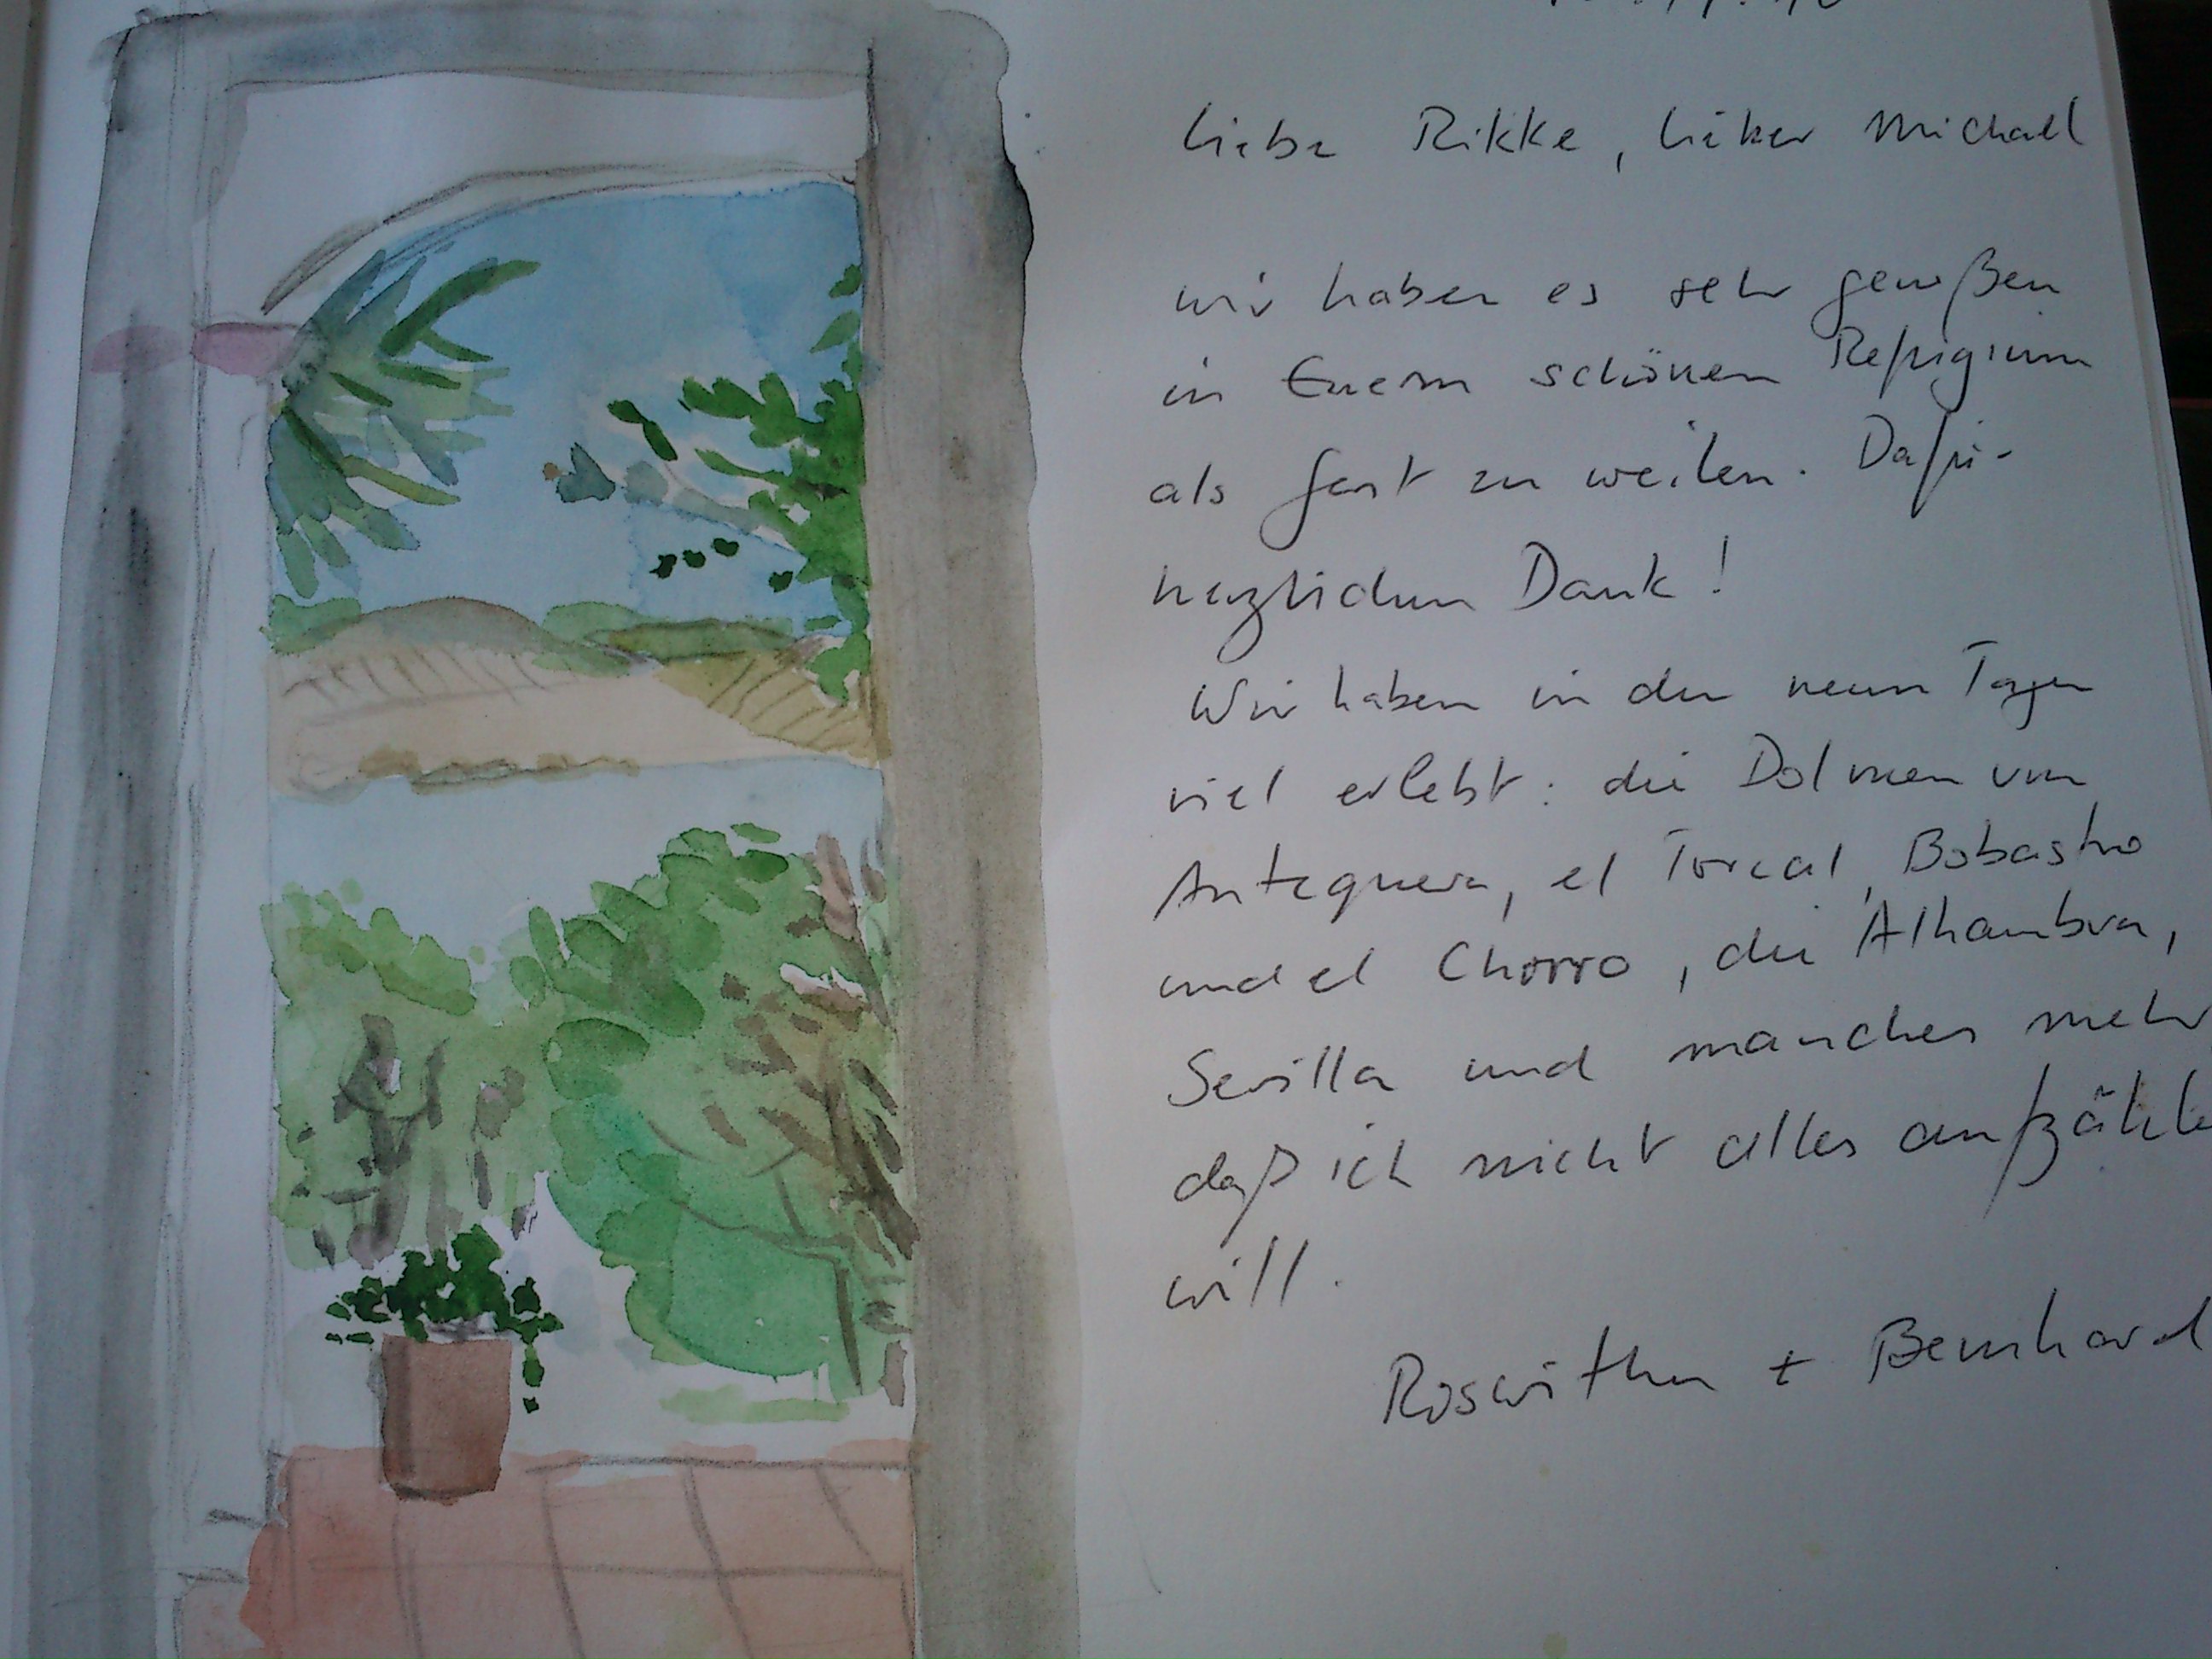 Liebe Rikke, lieber Michael
wir haben es sehr genoßen
in Euerm schönen Refugium
als Gast zu weilen. Dafür
herzlichen Dank!
Wir haben in den neun Tagen
viel erlebt: die Dolmen von
Antequera, el Torcal, Bobastro
und el Chorro, die Alhambra,
Sevilla und manches mehr,
daß ich nicht alles aufzählen
will.
Roswitha + Bernhard